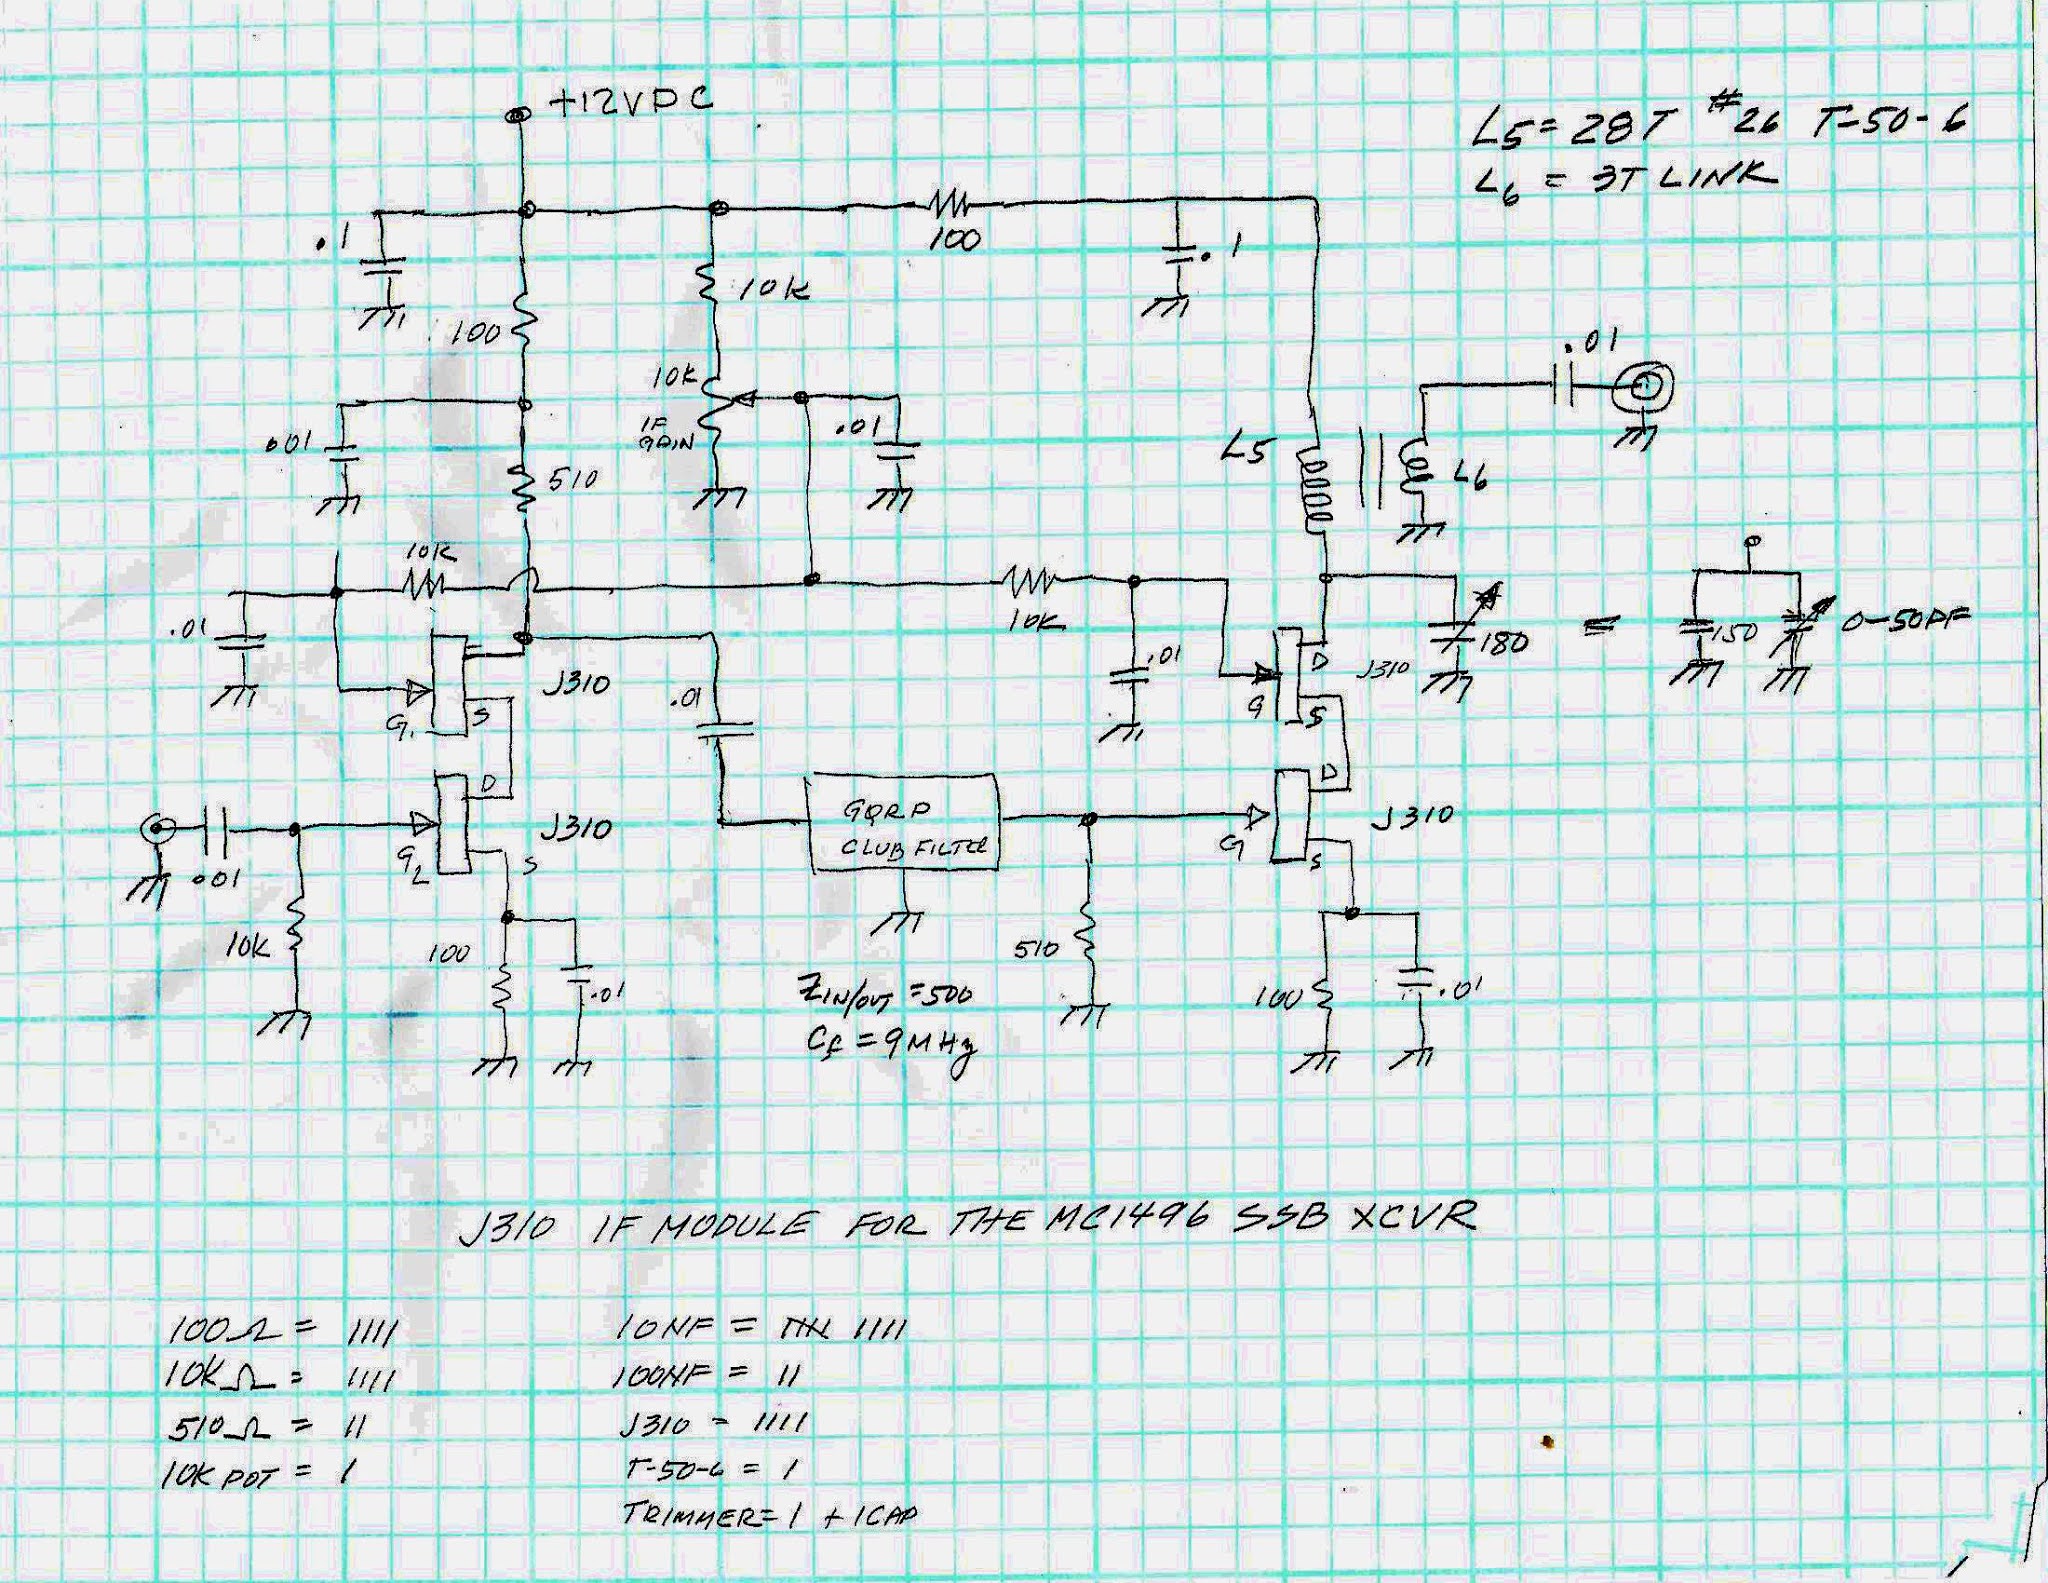 +12VDC
L5 = 28T #26 T-50-6
L6 = 3T LINK
.1
100
.1
100
10K
.01
10K
IF
GAIN
.01
.01
510
L5
L6
10K
.01
10K
.01
J310
G1
S
.01
G
D
S
J310
180
=
150
0-50PF
D
J310
G2
S
.01
10K
100
.01
GQRP
CLUB FILTER
ZIN/OUT = 500
CF = 9MHz
510
G
D
J310
S
100
.01
J310 IF MODULE FOR THE MC1496 SSB XCVR
100Ω = IIII
10KΩ = IIII
510Ω = II
10K POT = 1
10NF = IIII IIII
100NF = II
J310 = IIII
T-50-6 = 1
TRIMMER = 1 + 1CAP